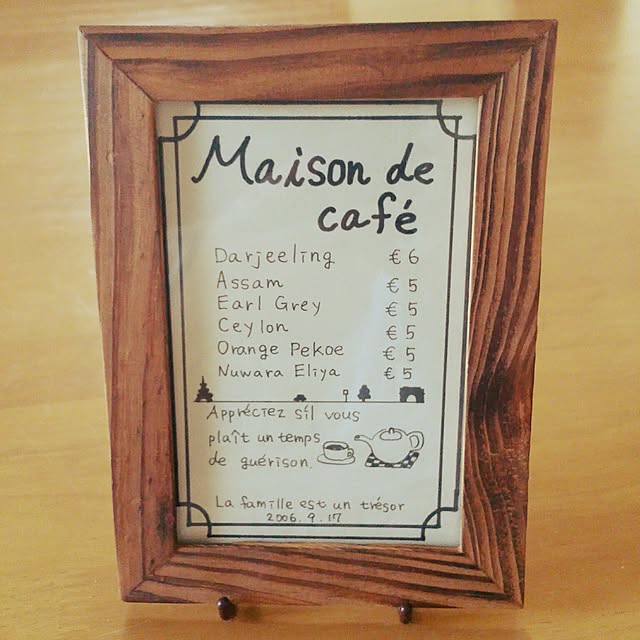 Maison de
café
Darjeeling € 6
Assam € 5
Earl Grey € 5
Ceylon € 5
Orange Pekoe € 5
Nuwara Eliya € 5
Appréciez s'il vous
plaît un temps
de guérison.
La famille est un trésor
2006. 9. 17